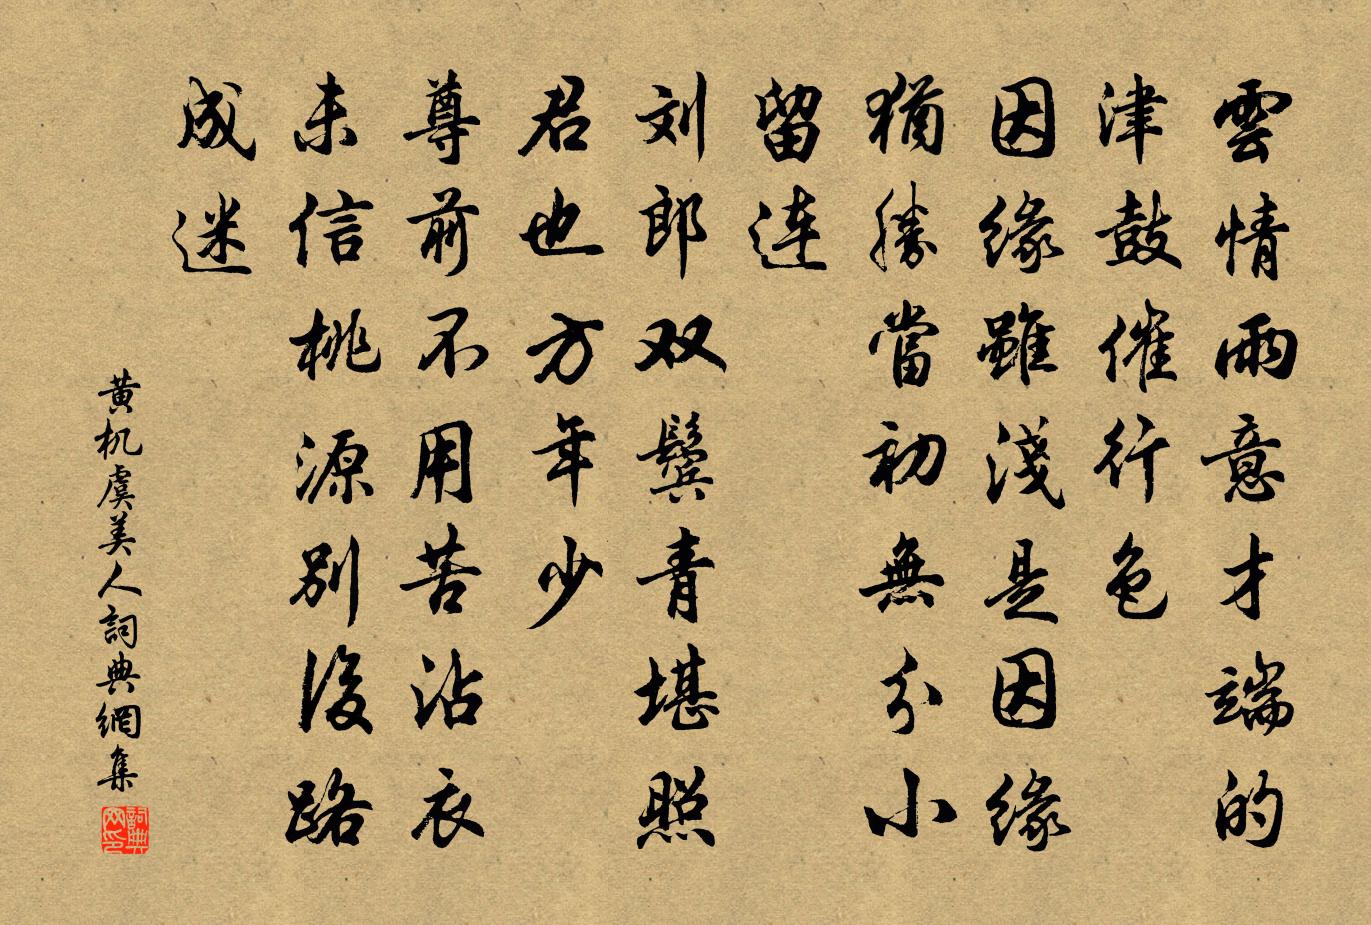 雲情雨意才端的
津鼓催行色
因缘雖淺是因缘
猶勝當初無分小
留连
刘郎双鬓青堪照
君也方年少
尊前不用苦沾衣
未信桃源别後路
成迷
黄机虞美人詞典網集
詞典网印